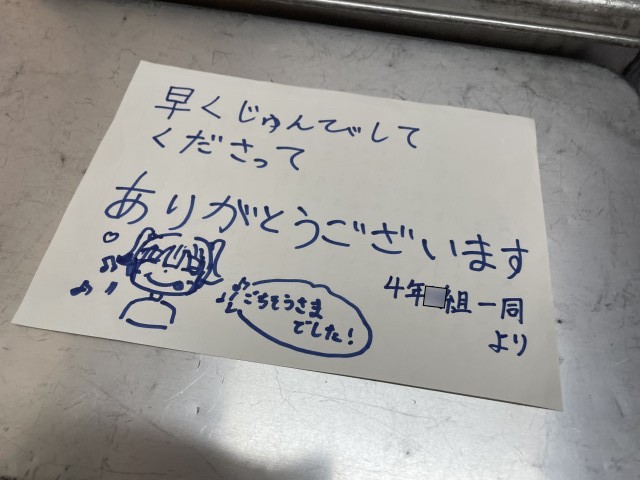 早くじゅんびして
くださって
ありがとうございます
4年組一同
より
ごちそうさま
でした!